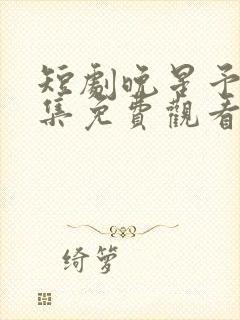 短劇晚星予
集免費觀看
绮萝